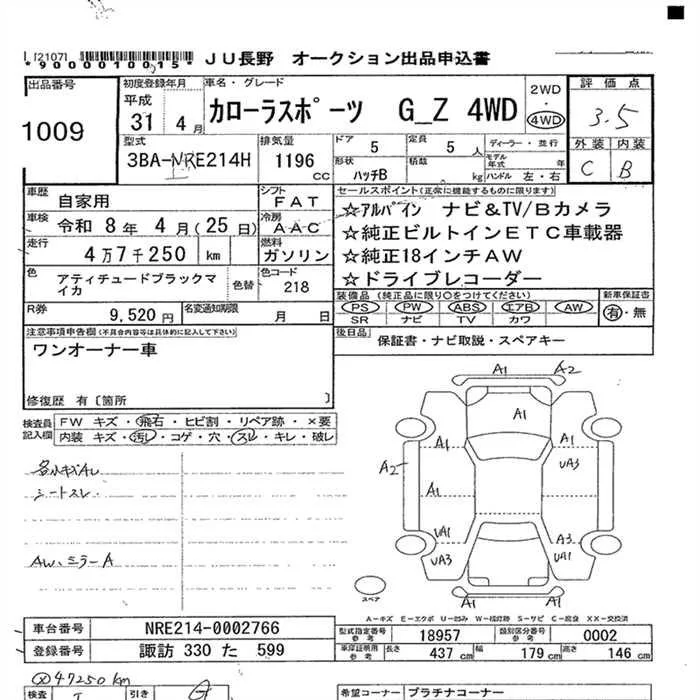 [2107]
*9000010015*
JU長野 オークション出品申込書
出品番号
1009
初度登録年月
平成
31 4月
車名・グレード
カローラスポーツ G_Z 4WD
2WD
・
4WD
評価点
3.5
外装 内装
C B
型式
3BA-NRE214H
排気量
1196 cc
ドア
5
定員
5 人
形状
ハッチB
積載
kg
ディーラー・並行
モデル年式 年
ハンドル 左・右
車歴
自家用
シフト
FAT
車検
令和 8年 4月(25日)
冷房
AAC
走行
4万7千250 km
燃料
ガソリン
色
アティチュードブラックマイカ
色替
色コード
218
R券
9,520円
名変通知期限
月 日
セールスポイント(正常に機能するものに限ります)
☆アルパイン ナビ&TV/Bカメラ
☆純正ビルトインETC車載器
☆純正18インチAW
☆ドライブレコーダー
装備品(純正品に限り○をつけてください)
PS ・ PW ・ ABS ・ エアB ・ AW
SR ナビ TV カワ
新車保証書
有・無
後日品
保証書・ナビ取説・スペアキー
注意事項申告欄(不具合内容等は具体的に記入して下さい)
ワンオーナー車
修復歴 有〔箇所 〕
検査員記入欄
FW キズ・飛石・ヒビ割・リペア跡・×要
内装 キズ・汚レ・コゲ・穴・スレ・キレ・破レ
各小キズAレ
シートスレ
AW、ミラーA
A1 A2
A1
A1 A1
A2 UA3
A1
UA1 A3
UA3 UA1
A1
スペア
A-キズ E-エクボ U-凹み W-補修跡 S-サビ C-腐食 XX-交換済
車台番号
NRE214-0002766
登録番号
諏訪 330 た 599
型式指定番号参考
18957
類別区分番号参考
0002
車庫証明用参考
長さ 437 cm 幅 179 cm 高さ 146 cm
47250 km
検査
引き
希望コーナー
プラチナコーナー